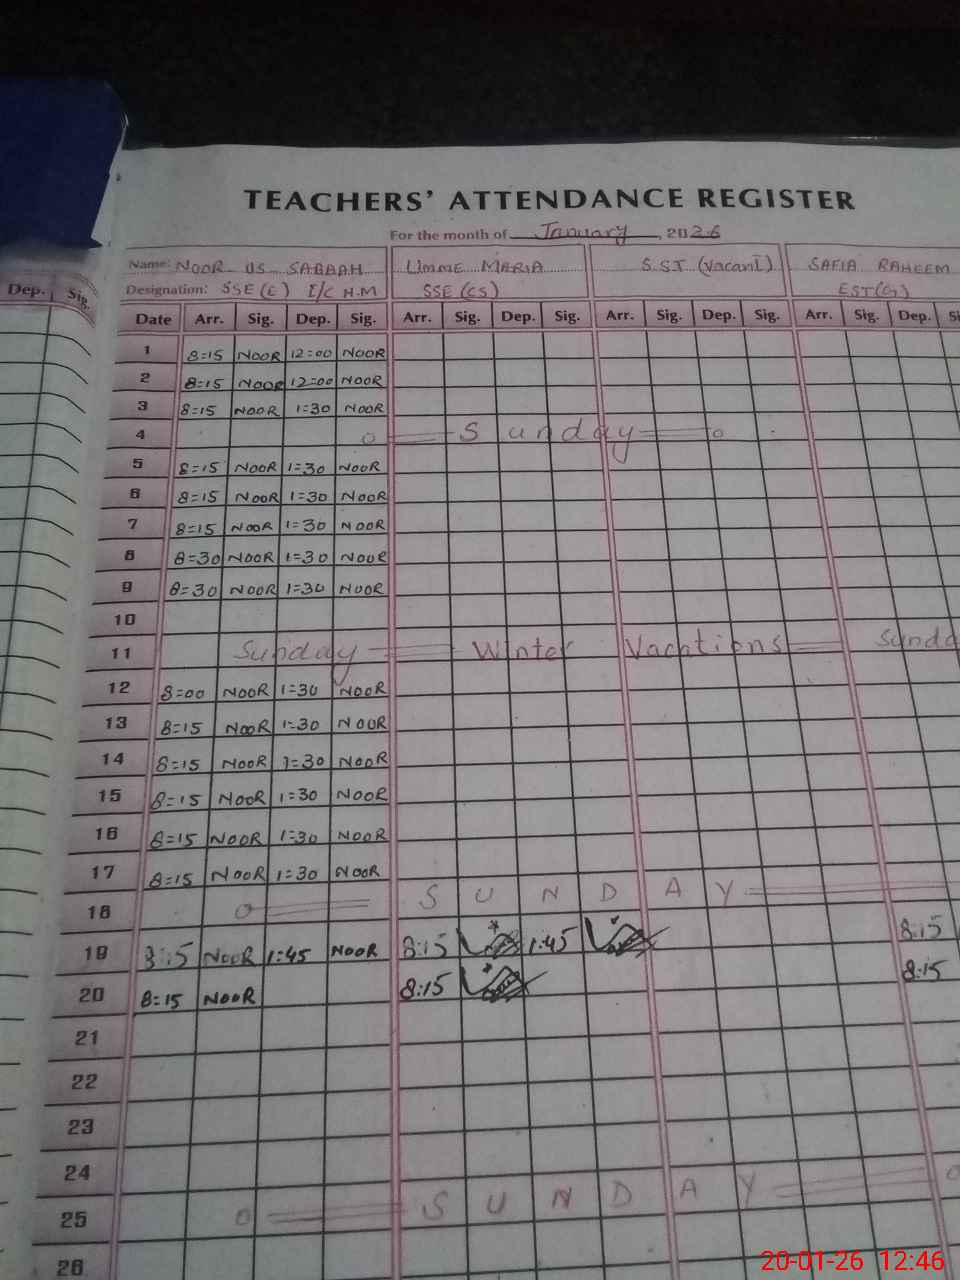 TEACHERS' ATTENDANCE REGISTER
For the month of January, 2026
Dep. Sig.
Name: NOOR US SABAAH UMME MARIA S.ST (Vacant) SAFIA RAHEEM
Designation: SSE (E) I/C H.M SSE (CS) EST(G)
Date Arr. Sig. Dep. Sig. Arr. Sig. Dep. Sig. Arr. Sig. Dep. Sig. Arr. Sig. Dep. Si
1 8=15 NOOR 12=00 NOOR
2 8=15 NOOR 12=00 NOOR
3 8=15 NOOR 1=30 NOOR
4 Sunday
5 8=15 NOOR 1=30 NOOR
6 8=15 NOOR 1=30 NOOR
7 8=15 NOOR 1=30 NOOR
8 8=30 NOOR 1=30 NOOR
9 8=30 NOOR 1=30 NOOR
10
11 Sunday Winter Vacations Sunda
12 8=00 NOOR 1=30 NOOR
13 8=15 NOOR 1=30 NOOR
14 8=15 NOOR 1=30 NOOR
15 8=15 NOOR 1=30 NOOR
16 8=15 NOOR 1=30 NOOR
17 8=15 NOOR 1=30 NOOR
18 SUNDAY
19 8:15 NOOR 1:45 NOOR 8:15 1:45 8:15
20 8=15 NOOR 8:15 8:15
21
22
23
24
25 SUNDAY
26
20-01-26 12:46